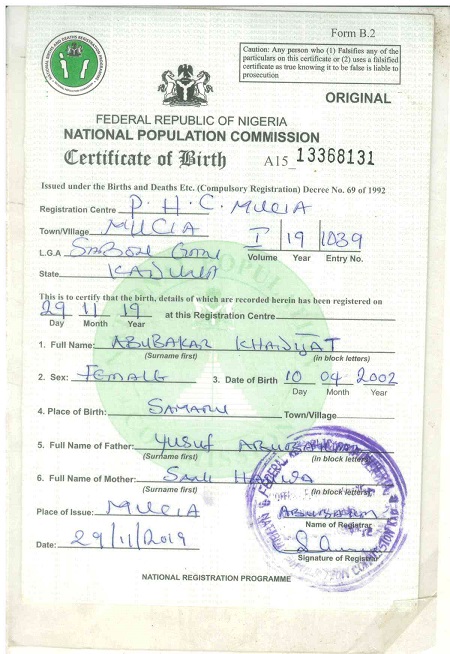 Form B.2
Caution: Any person who (1) Falsifies any of the
particulars on this certificate or (2) uses a falsified
certificate as true knowing it to be false is liable to
prosecution
ORIGINAL
FEDERAL REPUBLIC OF NIGERIA
NATIONAL POPULATION COMMISSION
Certificate of Birth A15 13368131
Issued under the Births and Deaths Etc. (Compulsory Registration) Decree No. 69 of 1992
Registration Centre P.H.C. MUCIA
Town/Village MUCIA
L.G.A SABON GARI I 19 1039
Volume Year Entry No.
State KADUNA
This is to certify that the birth, details of which are recorded herein has been registered on
29 11 19 at this Registration Centre
Day Month Year
1. Full Name: ABUBAKAR KHADIJAT
(Surname first) (in block letters)
2. Sex: FEMALE 3. Date of Birth 10 04 2002
Day Month Year
4. Place of Birth: SAMARU Town/Village
5. Full Name of Father: YUSUF ABUBAKAR
(Surname first) (in block letters)
6. Full Name of Mother: SANI
(Surname first) (in block letters)
Place of Issue: MUCIA
Name of Registrar
Date: 29/11/2019
Signature of Registrar
NATIONAL REGISTRATION PROGRAMME